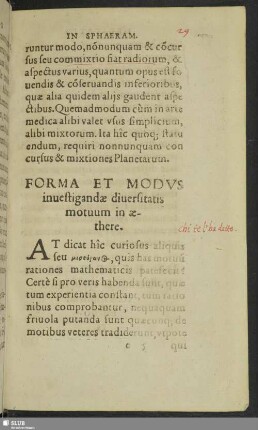 IN SPHAERAM. 29
runtur modo, nõnunquam & cõcur
sus seu commixtio fiat radiorum, &
aspectus varius, quantum opus est fo
uendis & cõseruandis inferioribus,
quæ alia quidem alijs gaudent aspe
ctibus. Quemadmodum em in arte
medica alibi valet vsus simplicium,
alibi mixtorum. Ita hîc quoq; statu
endum, requiri nonnunquam con
cursus & mixtiones Planetarum.
FORMA ET MODVS
inuestigandæ diuersitatis
motuum in æ-
there.
chi te l'ha detto.
AT dicat hîc curiosus aliquis
seu quis has motuũ
rationes mathematicis
Certè si pro veris habenda sunt, quæ
tum experientia constant, tum ratio
nibus comprobantur, nequaquam
friuola putanda sunt quæcunq; de
motibus veteres tradiderunt, vtpote
e 5 qui
SLUB